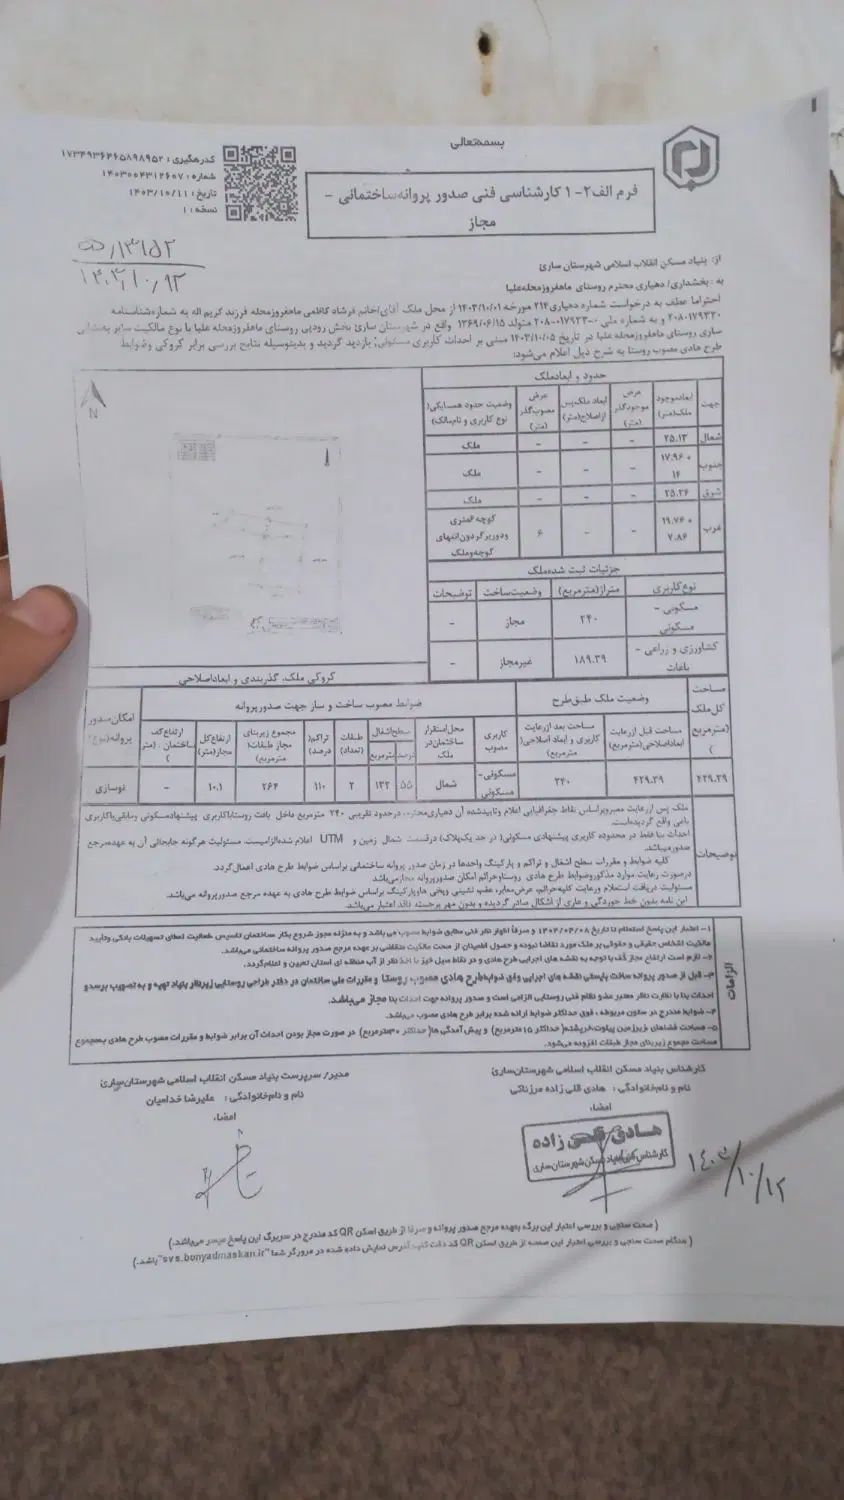 بسمه‌تعالی
فرم الف۲- ۱ کارشناسی فنی صدور پروانه ساختمانی -
مجاز
کدرهگیری : ۱۷۳۴۹۳۶۴۶۵۸۹۸۹۵۲
شماره : ۱۴۰۳۰۰۴۳۱۲۶۰۷
تاریخ : ۱۴۰۳/۱۰/۱۱
نسخه : ۱
از: بنیاد مسکن انقلاب اسلامی شهرستان ساری
به : بخشداری/ دهیاری محترم روستای ماهفروزمحله‌علیا
احتراما عطف به درخواست شماره دهیاری۲۱۴ مورخه ۱۴۰۳/۱۰/۰۱ از محل ملک آقای/خانم فرشاد کاظمی ماهفروزمحله فرزند کریم اله به شماره‌شناسنامه
۲۰۸۰۱۷۹۳۳۰ و به شماره ملی ۰-۰۱۷۹۳۳-۲۰۸ متولد ۱۳۶۹/۰۶/۱۵ واقع در شهرستان ساری بخش رودپی روستای ماهفروزمحله علیا با نوع مالکیت سایر
ساری روستای ماهفروزمحله‌علیا در تاریخ ۱۴۰۳/۱۰/۰۵ مبنی بر احداث کاربری مسکونی؛ بازدید گردید و بدینوسیله نتایج بررسی برابر کروکی وضوابط
طرح هادی مصوب روستا به شرح ذیل اعلام می‌شود:
حدود و ابعادملک
جهت ابعادموجود ملک(متر) عرض موجودگذر (متر) ابعاد ملک‌پس ازاصلاح(متر) عرض مصوب‌گذر (متر) وضعیت حدود همسایگی( نوع کاربری و نام‌مالک)
شمال ۲۵.۱۳ - - - ملک
جنوب ۱۷.۹۶ + ۱۴ - - - ملک
شرق ۲۵.۲۶ - - - ملک
غرب ۱۹.۷۶ + ۷.۸۶ - - ۶ کوچه ۶متری ودوربرگردون‌انتهای کوچه‌وملک
جزئیات ثبت شده‌ملک
نوع‌کاربری متراژ(مترمربع) وضعیت‌ساخت توضیحات
مسکونی - مسکونی ۲۴۰ مجاز -
کشاورزی و زراعی - باغات ۱۸۹.۳۹ غیرمجاز -
کروکی ملک، گذربندی و ابعاداصلاحی
مساحت کل‌ملک (مترمربع) وضعیت ملک طبق‌طرح ضوابط مصوب ساخت و ساز جهت صدورپروانه امکان‌صدور پروانه(نوع)
مساحت قبل ازرعایت ابعاداصلاحی(مترمربع) مساحت بعد ازرعایت کاربری و ابعاد اصلاحی( مترمربع) کاربری مصوب محل‌استقرار ساختمان‌در ملک سطح‌اشغال درصد مترمربع طبقات (تعداد) تراکم( درصد) مجموع زیربنای مجاز طبقات( مترمربع) ارتفاع‌کل مجاز(متر) ارتفاع‌کف ساختمان . (متر)
۴۲۹.۳۹ ۴۲۹.۳۹ ۲۴۰ مسکونی- مسکونی شمال ۵۵ ۱۳۲ ۲ ۱۱۰ ۲۶۴ ۱۰.۱ - نوسازی
توضیحات
ملک پس ازرعایت معبروبراساس نقاط جغرافیایی اعلام وتاییدشده آن دهیاری‌محترم، درحدود تقریبی ۲۴۰ مترمربع داخل بافت روستاباکاربری پیشنهادمسکونی ومابقی‌باکاربری
باغی واقع گردیده‌است.
احداث بنا فقط در محدوده کاربری پیشنهادی مسکونی( در حد یک‌پلاک) درقسمت شمال زمین و UTM اعلام شده‌الزامیست. مسئولیت هرگونه جابجائی آن به عهده‌مرجع
صدورمیباشد.
کلیه ضوابط و مقررات سطح اشغال و تراکم و پارکینگ واحدها در زمان صدور پروانه ساختمانی براساس ضوابط طرح هادی اعمال‌گردد.
درصورت رعایت موارد مذکوروضوابط طرح هادی روستاوحرائم امکان صدورپروانه مجازمی‌باشد
مسئولیت دریافت استعلام ورعایت کلیه‌حرائم، عرض‌معابر، عقب نشینی وپخی هاوپارکینگ براساس ضوابط طرح هادی به عهده مرجع صدورپروانه می‌باشد.
این نامه بدون خط خوردگی و عاری از اشکال صادر گردیده و بدون مهر برجسته فاقد اعتبار می‌باشد.
الزامات
۱- اعتبار این پاسخ استعلام تا تاریخ ۱۴۰۴/۰۴/۰۸ و صرفاً اظهار نظر فنی مطابق ضوابط مصوب می باشد و به منزله مجوز شروع بکار ساختمان تاسیس، فعالیت اعطای تسهیلات بانکی وتأیید
مالکیت اشخاص حقیقی و حقوقی بر ملک مورد تقاضا نبوده و حصول اطمینان از صحت مالکیت متقاضی بر عهده مرجع صدور پروانه ساختمانی می‌باشد.
۲- لازم است ارتفاع مجاز کف با توجه به نقشه های اجرایی طرح هادی و در نقاط سیل خیز با اخذ نظر از آب منطقه ای استان تعیین و اعلام‌گردد.
۳- قبل از صدور پروانه ساخت بایستی نقشه های اجرایی وفق ضوابط‌طرح هادی مصوب روستا و مقررات ملی ساختمان در دفتر طراحی روستایی زیرنظر بنیاد تهیه و به تصویب برسدو
احداث بنا با نظارت ناظر معتبر عضو نظام فنی روستایی الزامی است و صدور پروانه جهت احداث بنا مجاز می‌باشد.
۴- ضوابط مندرج در ستون مربوطه ، فوق حداکثر ضوابط ارائه شده برابر طرح هادی مصوب می‌باشد.
۵- مساحت فضاهای زیرزمین پیلوت،خرپشته( حداکثر ۱۵ مترمربع) و پیش آمدگی ها(حداکثر ۳۰مترمربع) در صورت مجاز بودن احداث آن برابر ضوابط و مقررات مصوب طرح هادی به‌مجموع
مساحت مجموع زیربنای مجاز طبقات افزوده می‌شود.
کارشناس بنیاد مسکن انقلاب اسلامی شهرستان‌ساری
نام و نام‌خانوادگی : هادی قلی زاده مرزناکی
امضا:
مدیر/ سرپرست بنیاد مسکن انقلاب اسلامی شهرستان‌ساری
نام و نام‌خانوادگی : علیرضا خدامیان
امضا:
هـادی قلی زاده
۱۴۰۳/۱۰/۱۲
( صحت سنجی و بررسی اعتبار این برگ بعهده مرجع صدور پروانه و صرفا از طریق اسکن QR کد مندرج در سربرگ این پاسخ میسر می‌باشد.)
( هنگام صحت سنجی و بررسی اعتبار این صفحه از طریق اسکن QR کد دقت کنید آدرس نمایش داده شده در مرورگر شما "svs.bonyadmaskan.ir" باشد.)